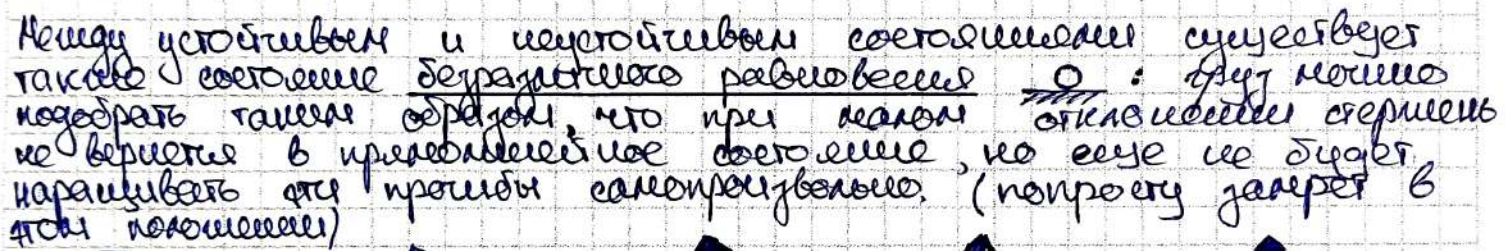 Между устойчивым и неустойчивым состояниями существует
также состояние безразличного равновесия : можно
подобрать таким образом, что при малом отклонении стержень
не вернется в прямолинейное состояние, но еще не будет
наращивать эти прогибы самопроизвольно. (попросту замрет в
этом положении)